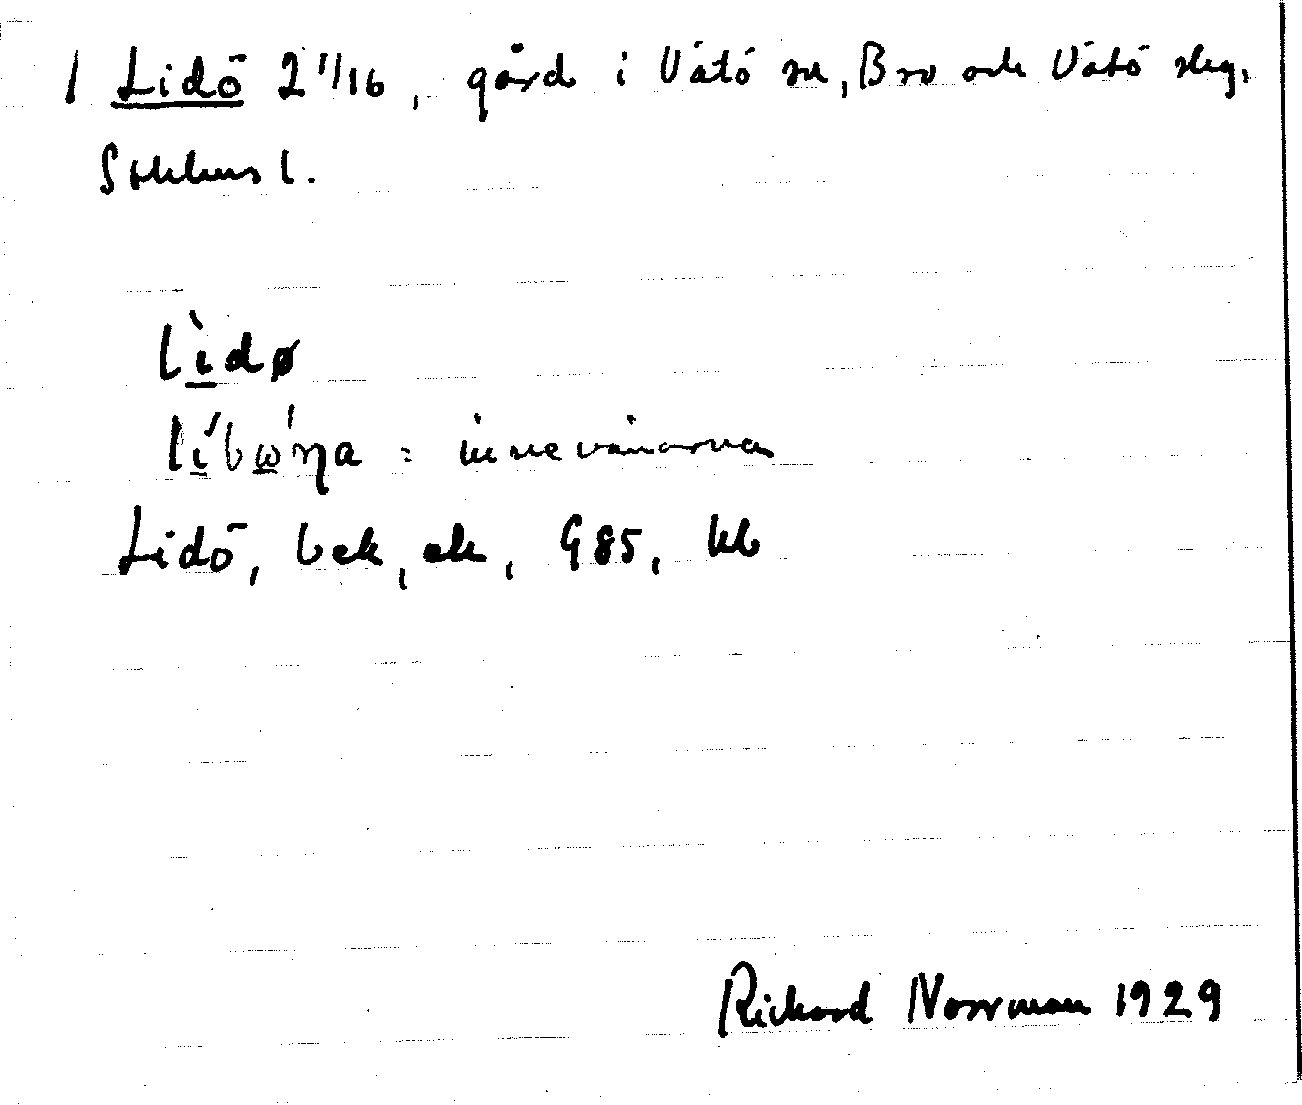 1 Lidö 2 1/16, gård i Vätö sn, Bro och Vätö skg,
Sthlms l.
lìdø
líbω'ŋa = innevånarna
Lidö, bek, ek, G85, kb
Richard Norrman 1929